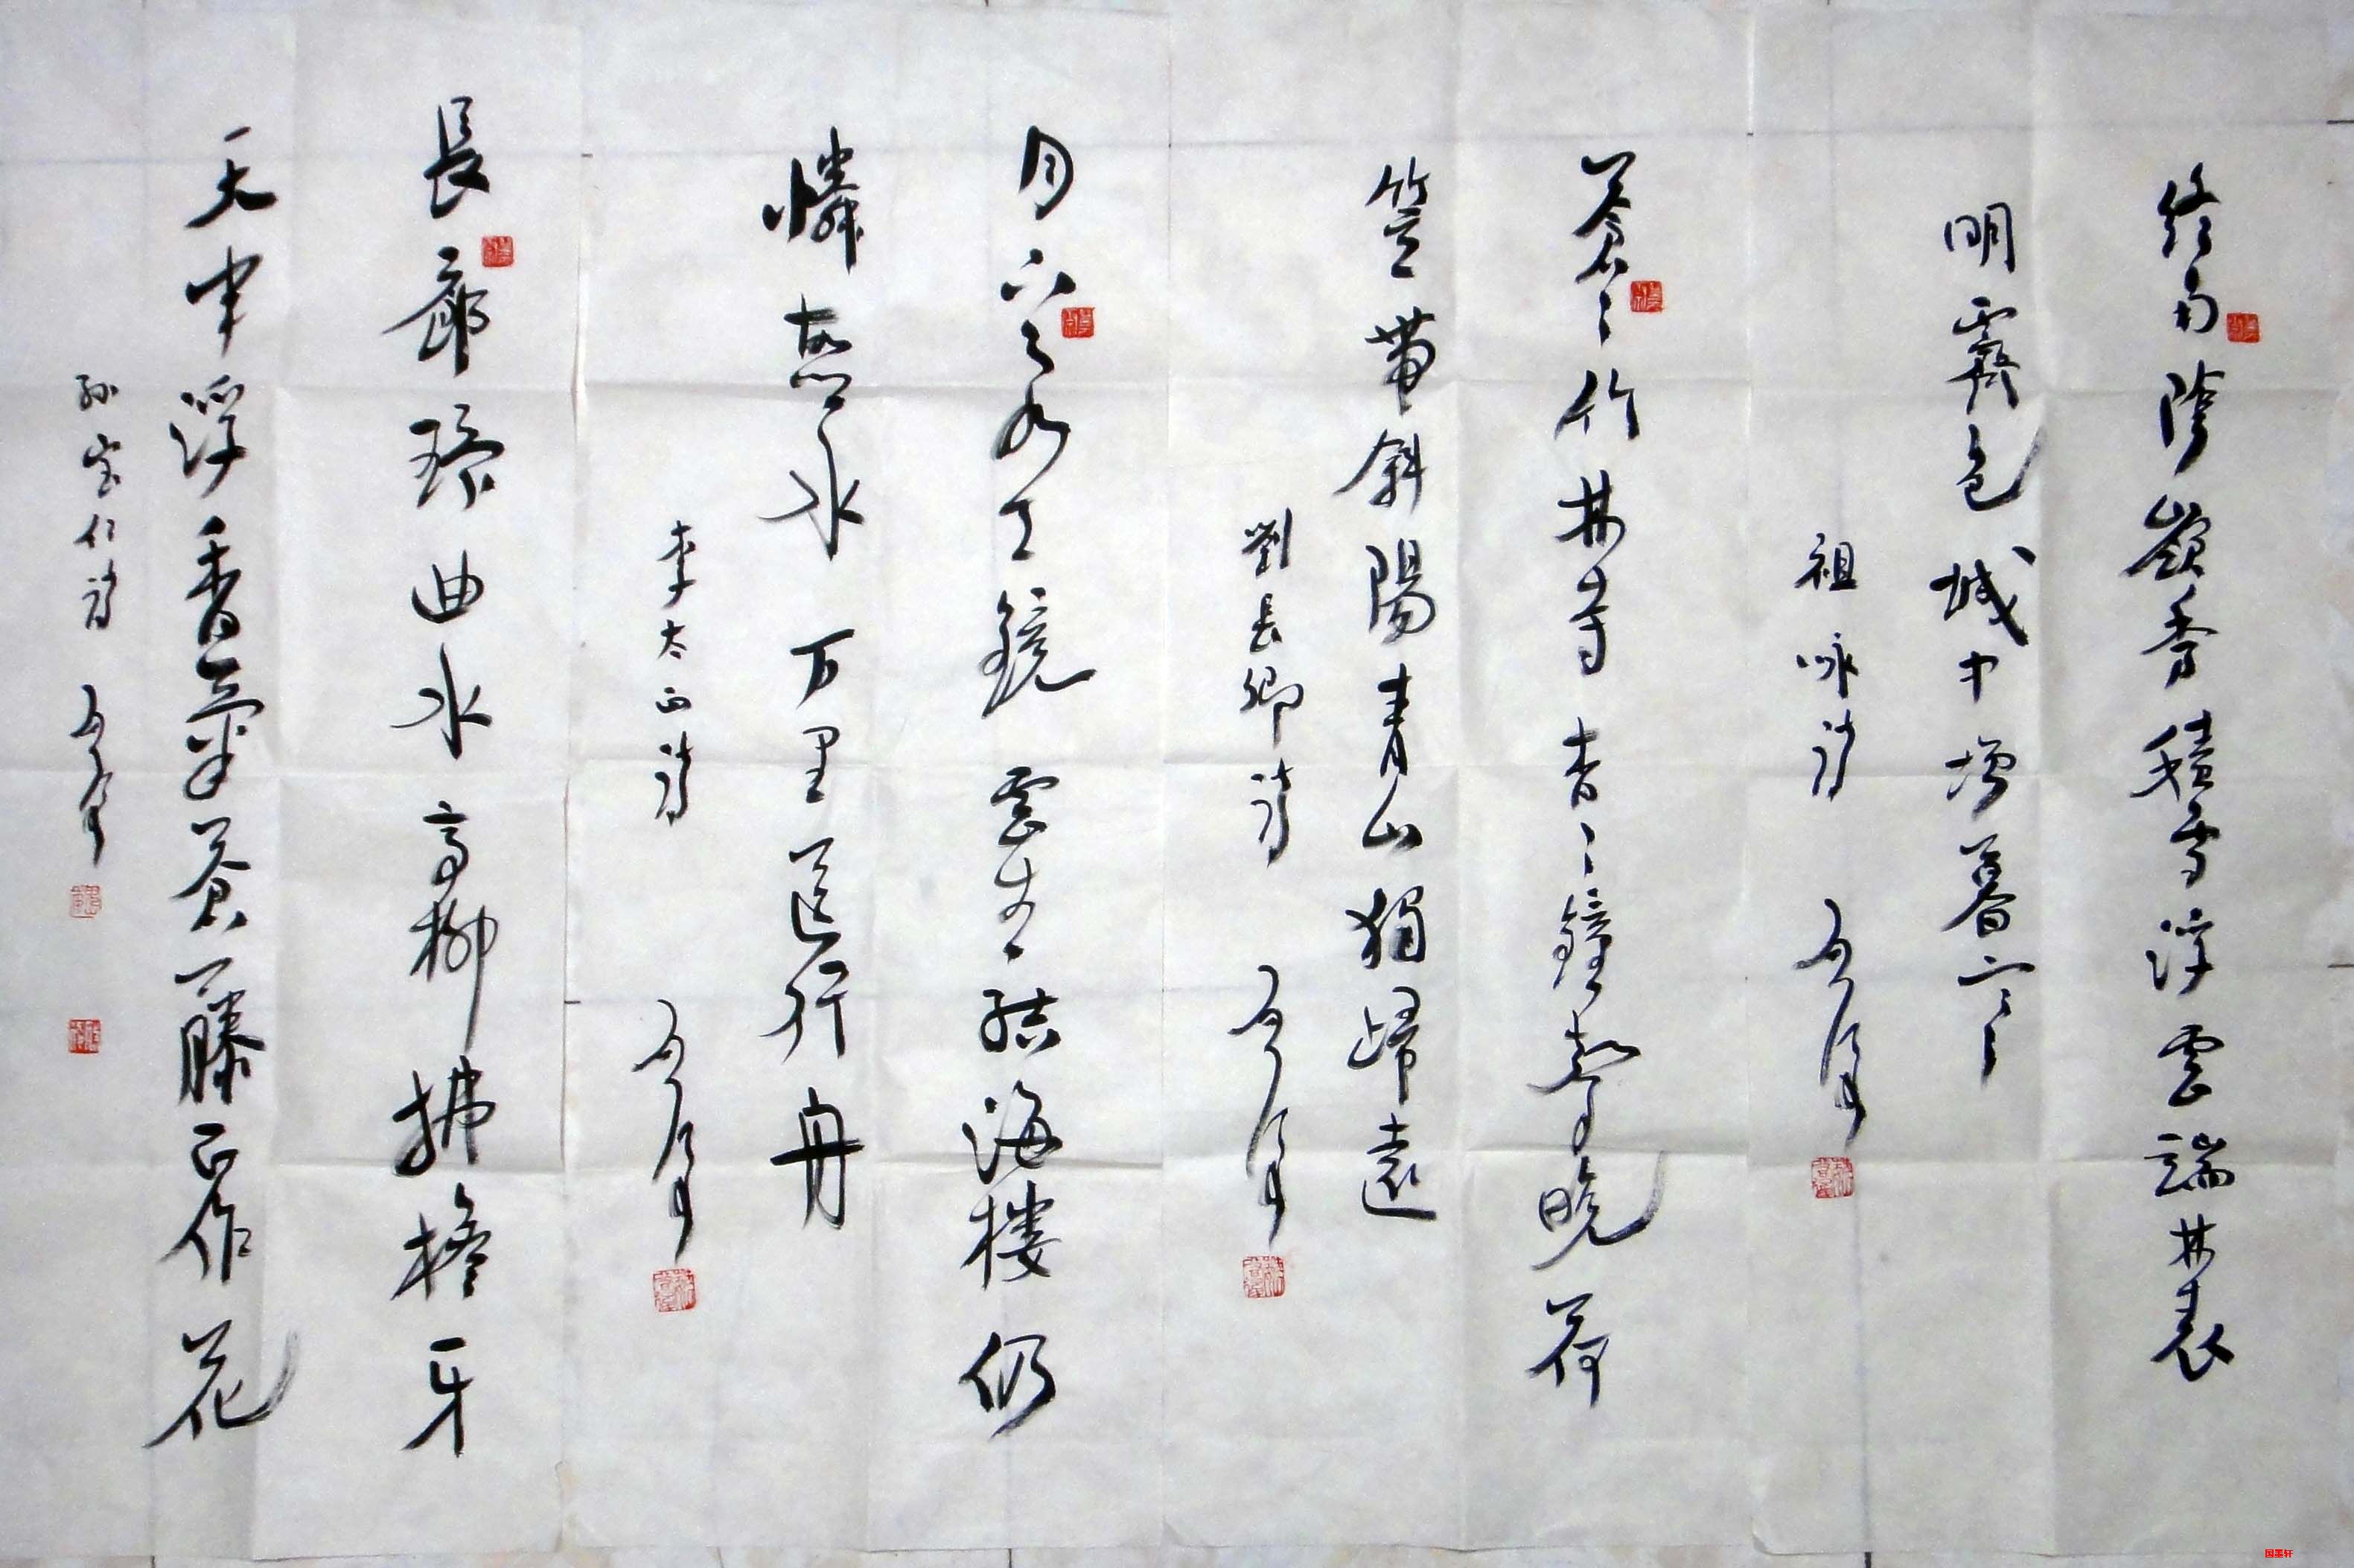 終南陰嶺秀積雪浮雲端林表
明霽色城中增暮寒
祖咏詩
蒼々竹林寺杳々鐘聲晚荷
笠帶斜陽青山獨歸遠
劉長卿詩
月下飛天鏡雲生結海樓仍
憐故鄉水万里送行舟
李太白詩
長廊環曲水高柳拂檐牙
天半浮香氣蒼藤正作花
孙宝仁詩
国墨轩